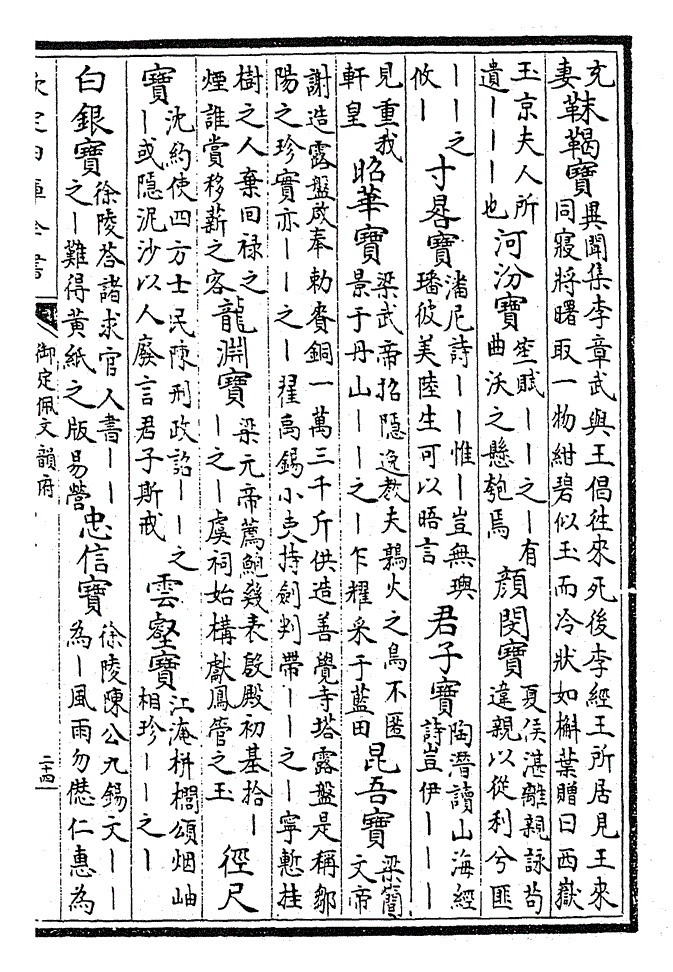 充妻 靺鞨寶 異聞集李章武與王倡往來死後李經王所居見王來同寢將曙取一物紺碧似玉而冷狀如槲葉贈曰西嶽
玉京夫人所遺｜｜｜也 河汾寶 笙賦｜｜之｜有曲沃之懸匏焉 顔閔寶 夏侯湛離親詠茍違親以從利兮匪
｜｜之攸｜ 寸晷寶 潘尼詩｜｜惟｜豈無璵璠彼美陸生可以晤言 君子寶 陶潛讀山海經詩豈伊｜｜｜
見重我軒皇 昭華寶 梁武帝招隱逸教夫鶉火之鳥不匿景于丹山｜｜之｜乍耀采于藍田 昆吾寶 梁簡文帝
謝造露盤啟奉勅賚銅一萬三千斤供造善覺寺塔露盤是稱鄒陽之珍實亦｜｜之｜翟禹錫小吏持劍判帶｜｜之｜寧慙挂
樹之人棄回禄之煙誰賞移薪之客 龍淵寶 梁元帝薦鮑幾表啟殿初基拾｜｜之｜虞祠始構獻鳳管之玉 徑尺
寶 沈約使四方士民陳刑政詔｜｜之｜或隱泥沙以人廢言君子斯戒 雲壑寶 江淹栟櫚頌烟岫相珍｜｜之｜
白銀寶 徐陵答諸求官人書｜｜之｜難得黄紙之版易營 忠信寶 徐陵陳公九錫文｜｜為｜風雨勿僁仁惠為
欽定四庫全書 御定佩文韻府 二十四